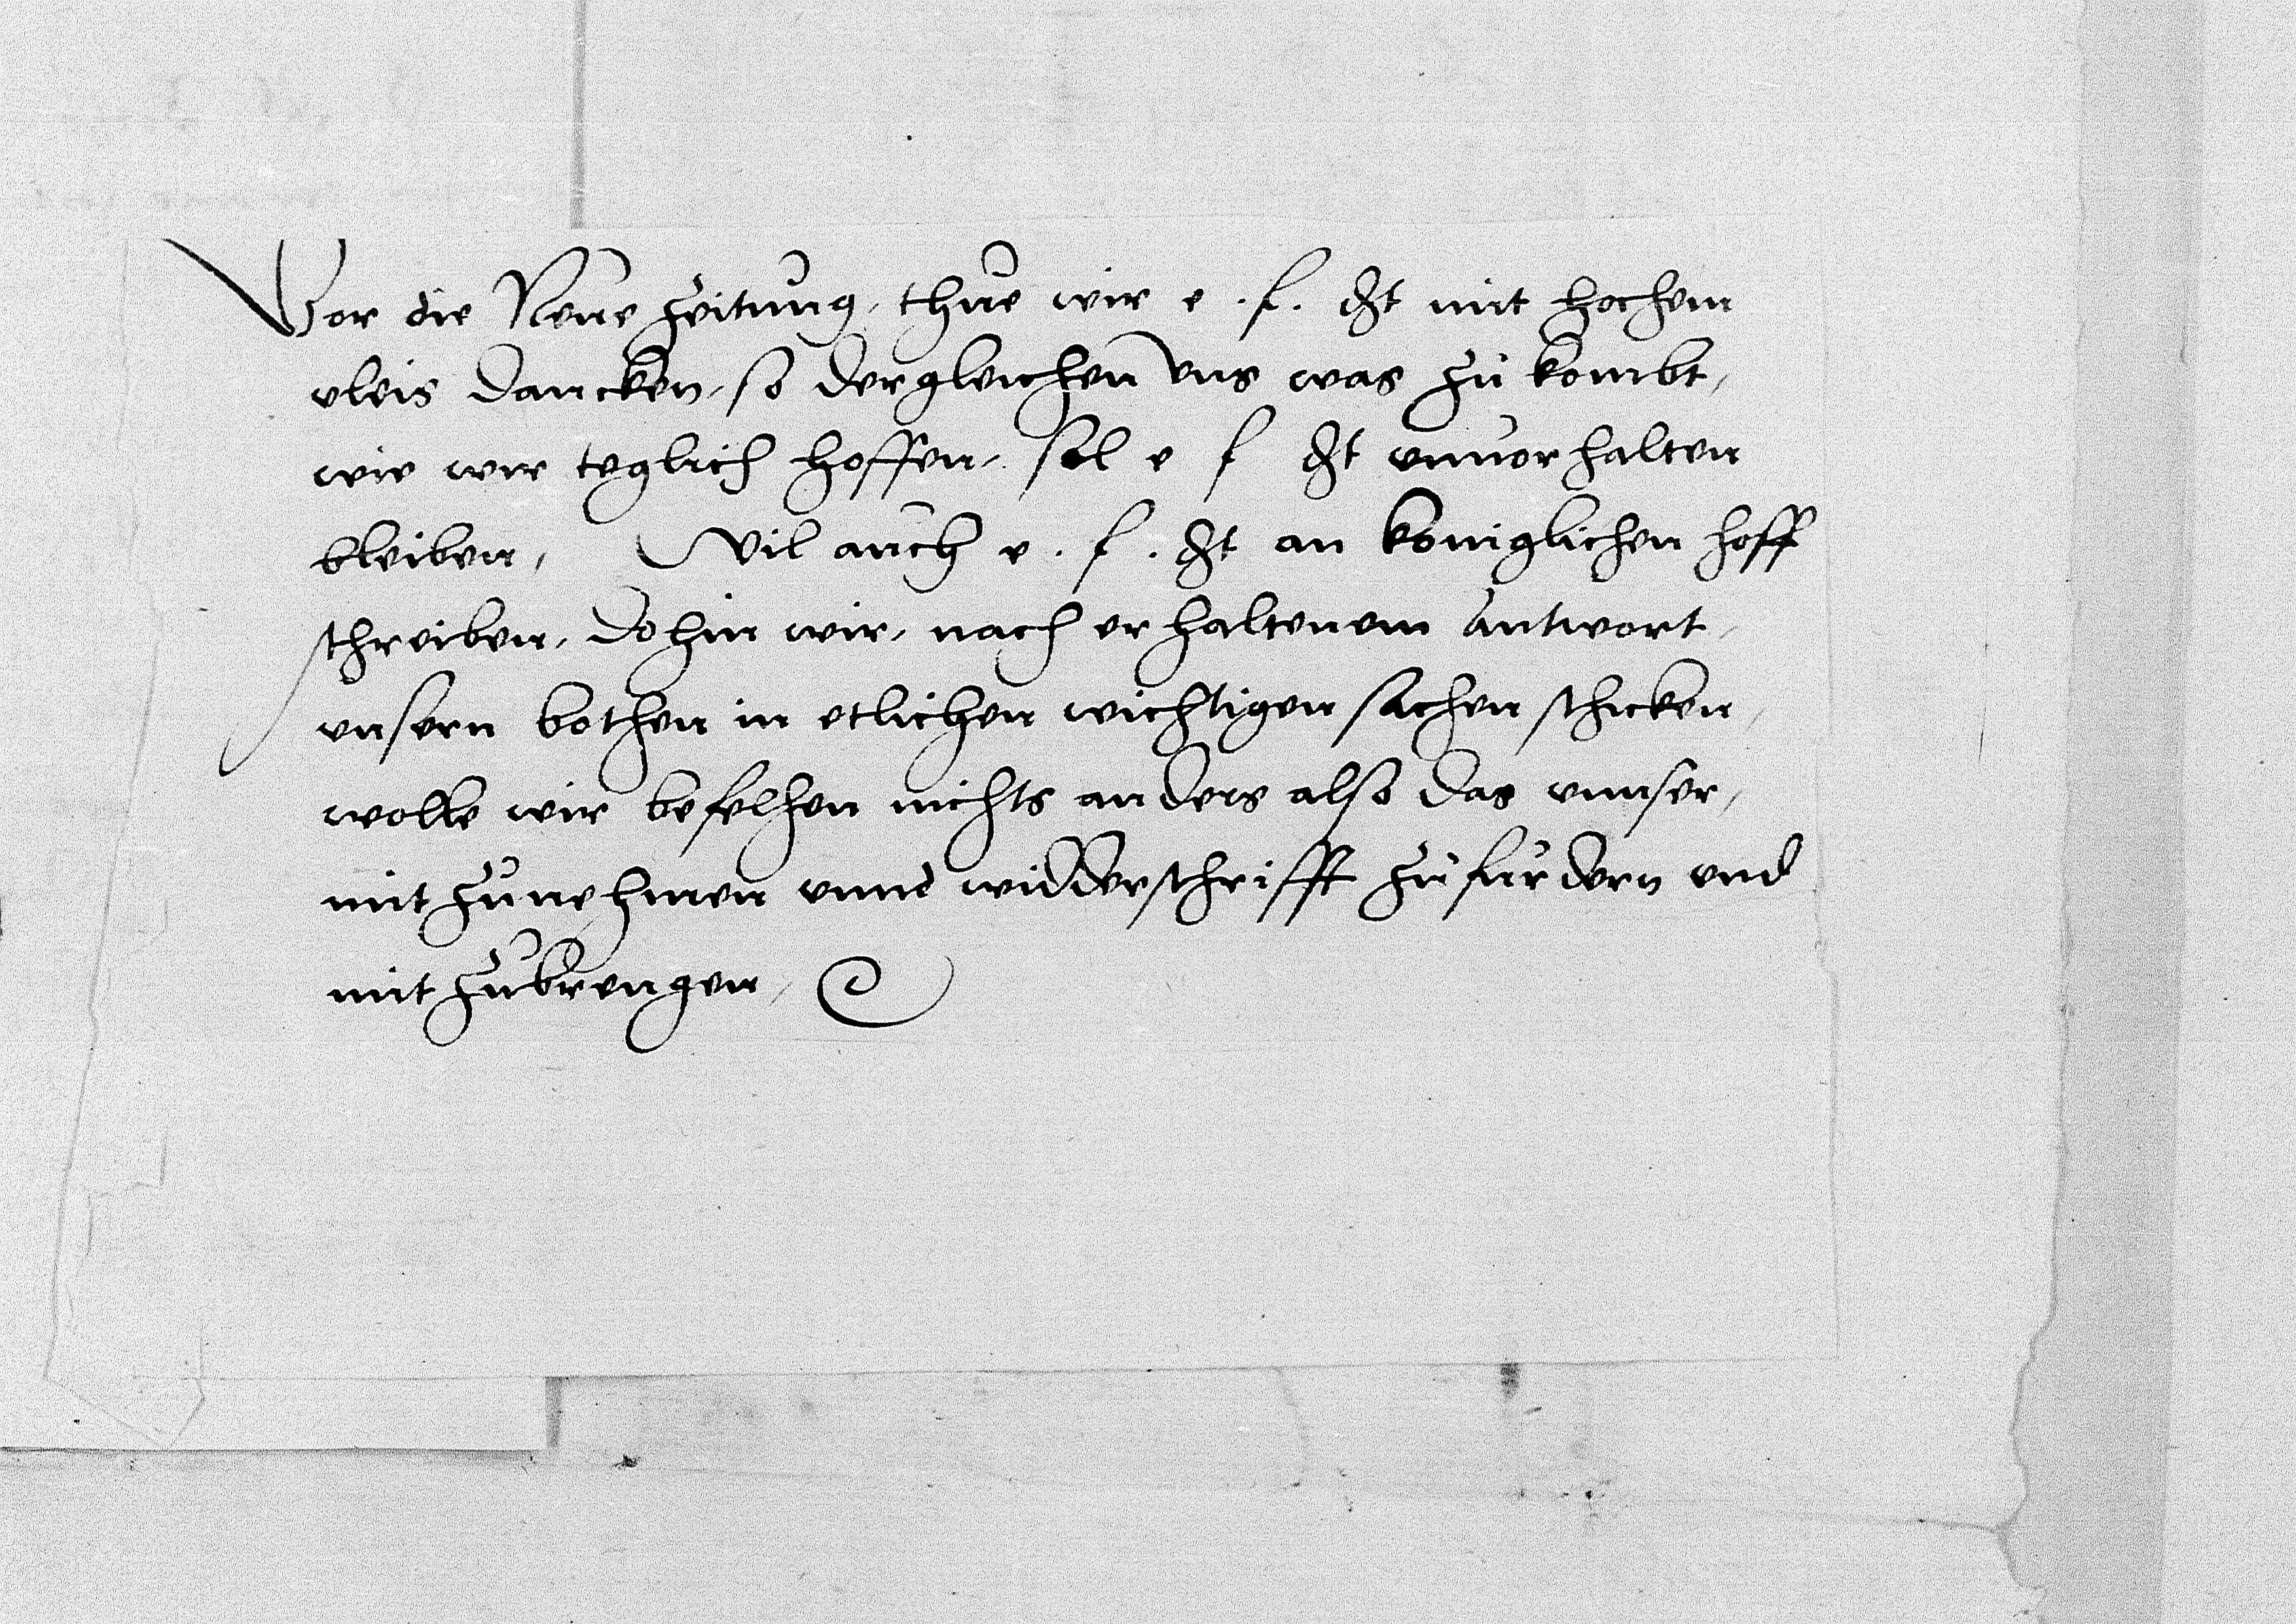 Vor die Neue zeitung, thue wir e. f. gt mit hochem
vleis dancken, so dergleichen vns was zu kombt,
wie wir teglich hoffen, sol e f gt vnuorhalten
bleiben, Wil auch e. f. gt an koniglichen hoff
schreiben, dohin wir, nach erhaltenem antwort,
vnsern bothen in etlichen wichtigen sachen schicken,
wolle wir befelhen nichts anders also das vnnser,
mit zunehmen vnnd widderschrifft zufurdern vnd
mit zubrengen,